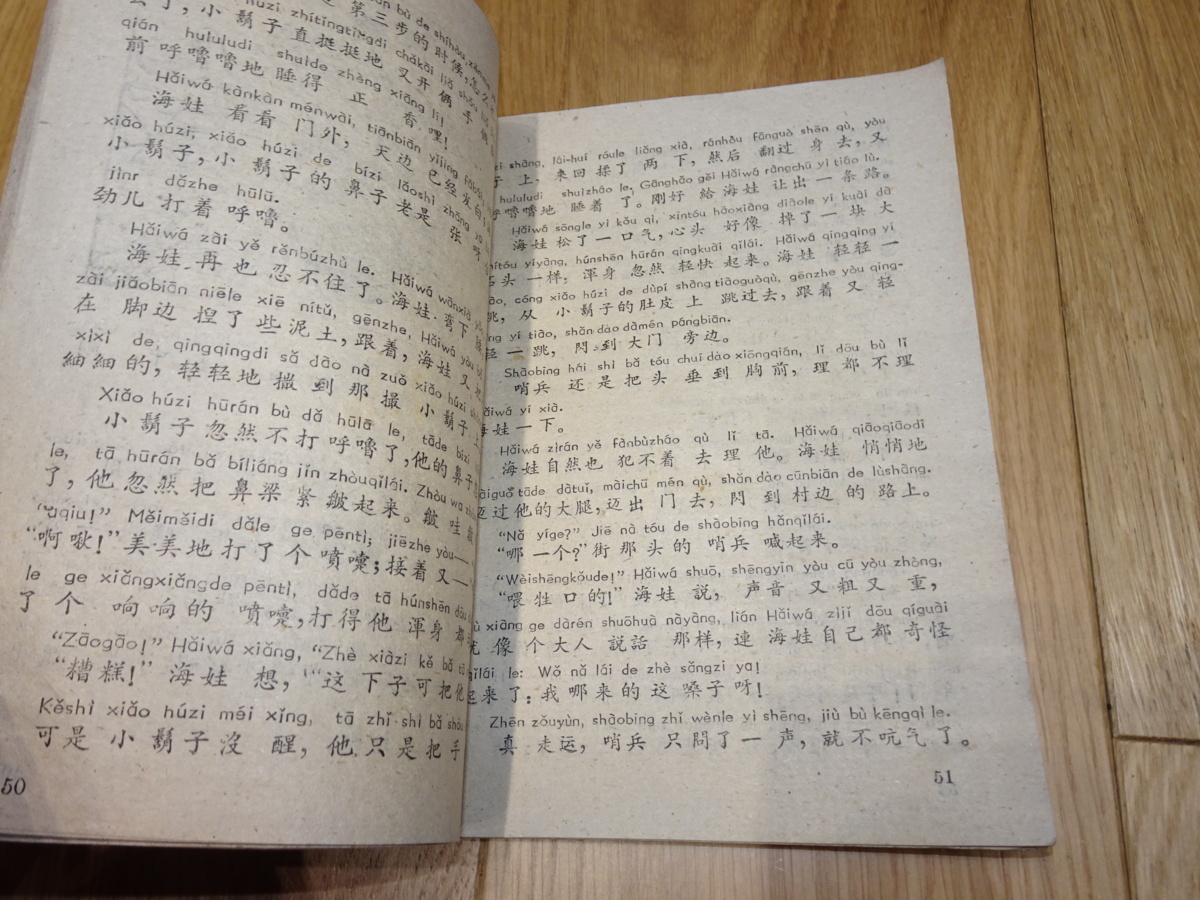 bù de shíhòu,
第三步的时候,怎么
zhítǐngtǐngdi chǎkāi liǎ shǒu
了,小鬍子直挺挺地 叉开 俩 手
qián hūlūlūdi shuìde zhèng xiāng li!
前 呼嚕嚕地睡得 正 香哩!
Hǎiwá kànkàn ménwài, tiānbiān yǐjing fābái,
海娃 看看 门外, 天边 已经 发白,
xiǎo húzi, xiǎo húzi de bízi lǎoshì zhāng yā
小鬍子,小鬍子的鼻子老是 张 呀
jìnr dǎzhe hūlū.
劲儿 打着 呼嚕。
Hǎiwá zài yě rěnbúzhù le. Hǎiwá wānxià
海娃 再也 忍不住了。海娃 弯下
zài jiǎobiān niēle xiē nítǔ, gēnzhe, Hǎiwá yòu
在 脚边 揑了些泥土,跟着,海娃又
xìxì de, qīngqīngdi sǎ dào nà zuǒ xiǎo húzi
細細的, 轻轻地 撒 到 那 撮 小鬍子上
Xiǎo húzi hūrán bù dǎ hūlū le, tāde bízi
小鬍子忽然不打呼嚕了,他的鼻子
le, tā hūrán bǎ bíliáng jǐn zhòuqǐlái. Zhòu wa
了, 他 忽然 把 鼻梁 紧皺起来。皺 哇
qiu!” Měiměidi dǎle ge pēntì; jiēzhe yòu—
“啊啾!”美美地打了个噴嚏;接着又—
le ge xiǎngxiǎngde pēntì, dǎde tā húnshēn dōu
了 个 响响的 噴嚏,打得他 渾身 都
“Zāogāo!” Hǎiwá xiǎng, “Zhè xiàzi kě bǎ tā
“糟糕!” 海娃 想, “这下子可把他
Kěshì xiǎo húzi méi xǐng, tā zhǐ shì bǎ shǒu
可是 小鬍子沒 醒, 他只是把手
50
shàng, lái-huí róule liǎng xià, ránhòu fānguò shēn qù, yòu
子 上, 来回 揉了 两 下, 然后 翻过 身去, 又
hūlūlūdi shuìzháo le. Gānghǎo gěi Hǎiwá ràngchū yì tiáo lù.
呼嚕嚕地 睡着 了。刚好 給 海娃 让出 一条路。
Hǎiwá sōngle yì kǒu qì, xīntóu hǎoxiàng diàole yí kuài dà
海娃 松了一口气,心头 好像 掉了 一块 大
shítóu yíyàng, húnshēn hūrán qīngkuài qǐlái. Hǎiwá qīngqīng yí
石头 一样, 渾身 忽然 轻快 起来。海娃 轻轻 一
tiào, cóng xiǎo húzi de dùpí shàng tiàoguòqù, gēnzhe yòu qīng-
跳, 从 小鬍子的肚皮 上 跳过去,跟着 又 轻
qīng yí tiào, shǎn dào dàmén pángbiān.
轻一跳, 閃到大门 旁边。
Shàobīng hái shì bǎ tóu chuí dào xiōngqián, lǐ dōu bù lǐ
哨兵 还是把头 垂到 胸前, 理 都 不 理
Hǎiwá yí xià.
海娃一下。
Hǎiwá zìrán yě fànbùzháo qù lǐ tā. Hǎiwá qiāoqiāodi
海娃自然也 犯不着 去理他。海娃 悄悄地
màiguò tāde dàtuǐ, màichū mén qù, shǎn dào cūnbiān de lùshàng.
迈过他的大腿,迈出 门去,閃 到村边 的 路上。
“Nǎ yíge?” Jiē nà tóu de shàobīng hǎnqǐlái.
“哪 一个?”街那头的 哨兵 喊起来。
“Wèishēngkǒude!” Hǎiwá shuō, shēngyīn yòu cū yòu zhòng,
“喂牲口的!” 海娃說, 声音 又粗又 重,
xiàng ge dàrén shuōhuà nàyàng, lián Hǎiwá zìjǐ dōu qíguài
像 个大人 説話 那样, 連 海娃自己 都 奇怪
qǐlái le: Wǒ nǎ lái de zhè sǎngzi ya!
起来了: 我 哪来的 这 嗓子 呀!
Zhēn zǒuyùn, shàobīng zhǐ wènle yì shēng, jiù bù kēngqì le.
真 走运, 哨兵 只 問了 一 声, 就 不吭气 了。
51